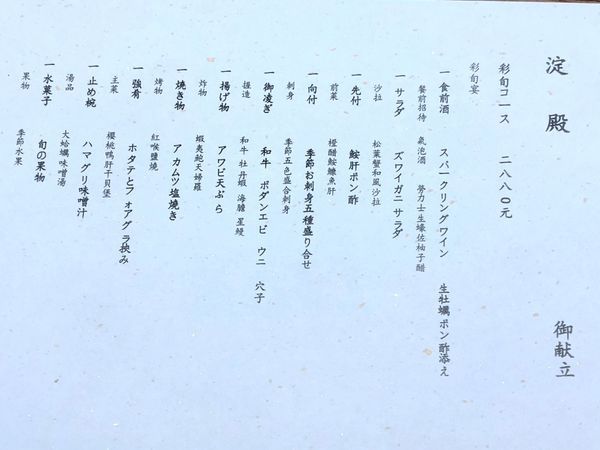 淀殿
御献立
彩旬コース 二八八〇元
彩旬宴
一 食前酒 スパークリングワイン 生牡蠣ポン酢添え
餐前招待 氣泡酒 勞力士生蠔佐柚子醋
一 サラダ ズワイガニサラダ
沙拉 松葉蟹和風沙拉
一 先付 鮟肝ポン酢
前菜 橙醋鮟鱇魚肝
一 向付 季節お刺身五種盛り合せ
刺身 季節五色盛合刺身
一 御凌ぎ 和牛 ボダンエビ ウニ 穴子
握造 和牛 牡丹蝦 海膽 星鰻
一 揚げ物 アワビ天ぷら
炸物 蝦夷鮑天婦羅
一 焼き物 アカムツ塩焼き
烤物 紅喉鹽燒
一 強肴 ホタテとフォアグラ挟み
主菜 櫻桃鴨肝干貝堡
一 止め椀 ハマグリ味噌汁
湯品 大蛤蠣味噌湯
一 水菓子 旬の果物
果物 季節水果